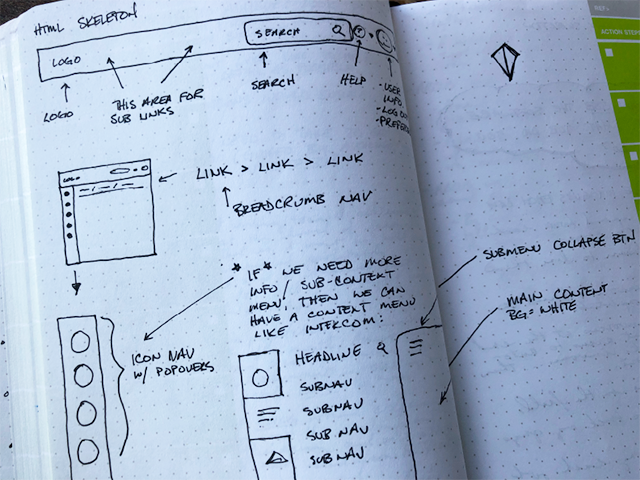 HTML SKELETON
LOGO
SEARCH
?
LOGO
THIS AREA FOR
SUB LINKS
SEARCH
HELP
- USER
INFO
- LOG OUT
- PREFER
LOGO
LINK > LINK > LINK
BREADCRUMB NAV
* IF * WE NEED MORE
INFO / SUB-CONTEXT
MENU, THEN WE CAN
HAVE A CONTENT MENU
LIKE INTERCOM:
ICON NAV
W/ POPOVERS
HEADLINE
SUBNAV
SUBNAV
SUB NAV
SUB NAV
SUBMENU COLLAPSE BTN
MAIN CONTENT
BG = WHITE
REF.
ACTION STEPS